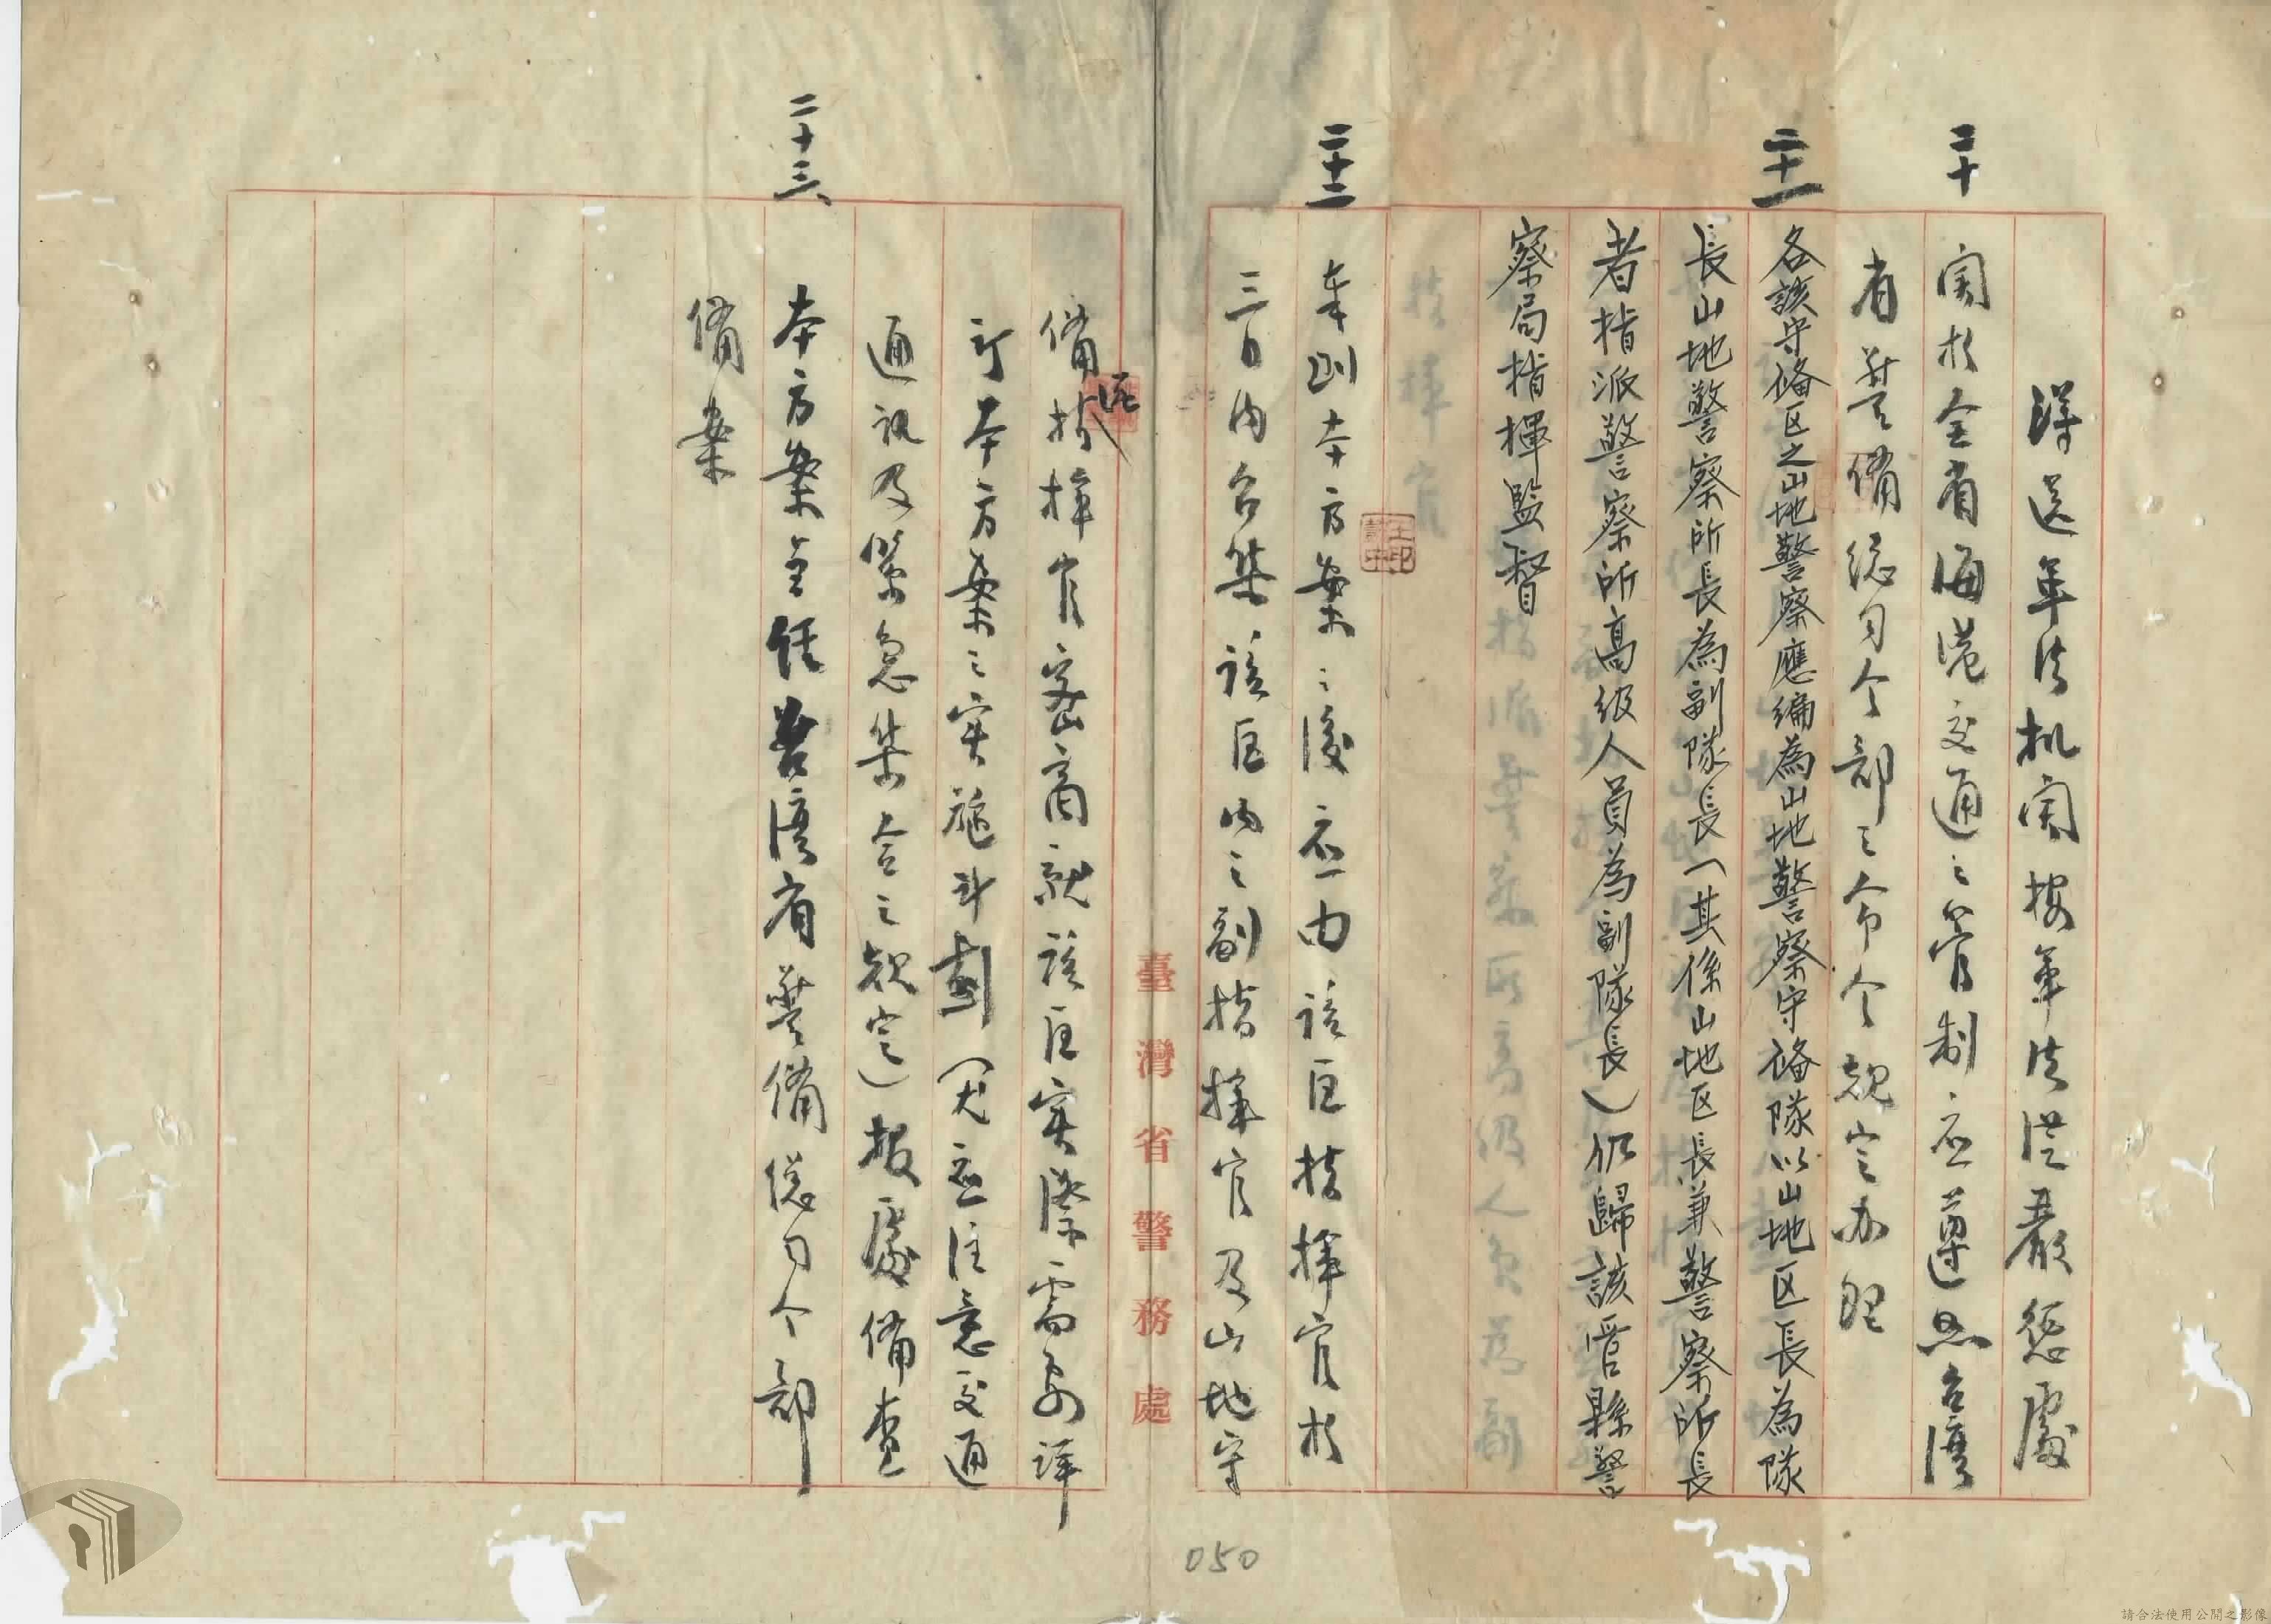 解送軍法机関按軍法從嚴懲處
二十
関於全省海港交通之管制应遵照台湾
省警備總司令部之命令規定办理
二十一
各該守備区之山地警察應編為山地警察守備隊以山地区長為隊
長山地警察所長為副隊長（其係山地区長兼警察所長
者指派警察所高級人員為副隊長）仍歸該管縣警
察局指揮監督
二十二
奉訓本方案之後应由該区指揮官於
三日內召集該区內之副指揮官及山地守
備指揮官密商就該区实際需要詳
区
訂本方案之实施計劃（尤应注意交通
通訊及緊急集合之規定）報處備查
二十三
本方案呈経台湾省警備總司令部
備案
臺灣省警務處
050
請合法使用公開之影像